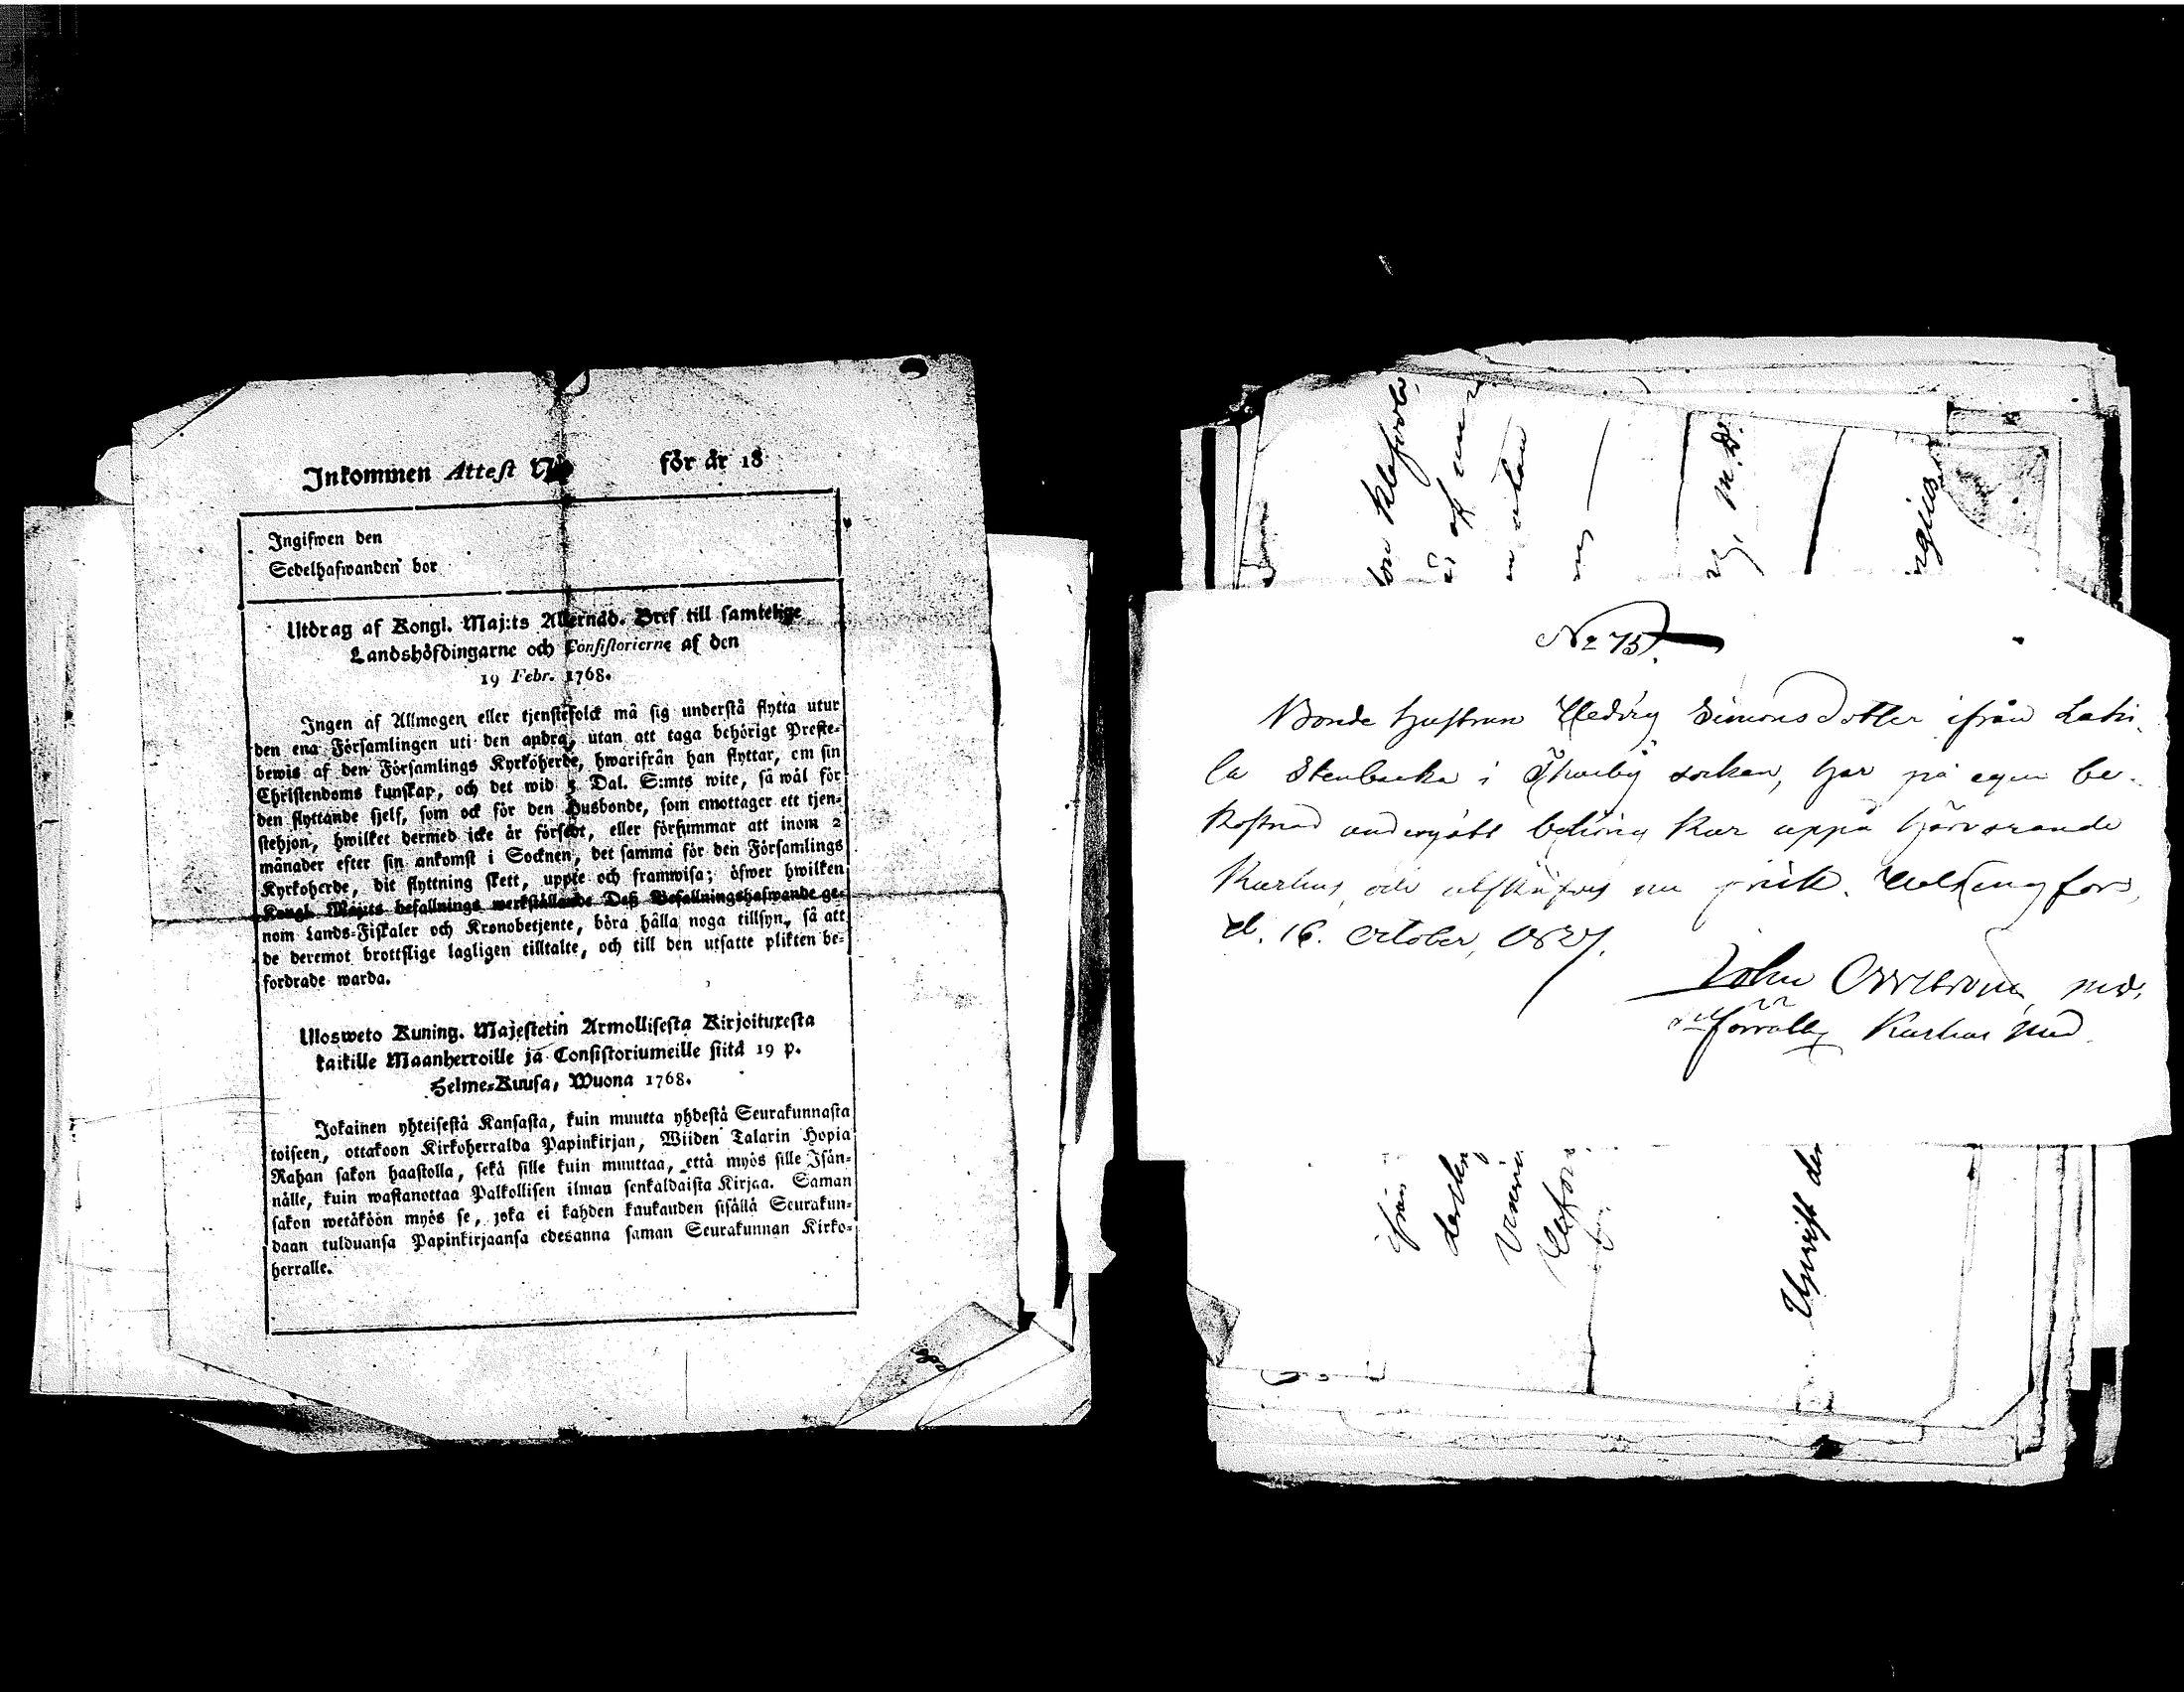 Inkommen Attest N:o för år 18
Ingifwen den
Sedelhafwanden bor
Utdrag af Kongl. Maj:ts Allernåd. Bref till samtelige
Landshöfdingarne och Consistorierne af den
19 Febr. 1768.
Ingen af Allmogen eller tjenstefolck må sig understå flytta utur
den ena Församlingen uti den andra, utan att taga behörigt Preste-
bewis af den Församlings Kyrkoherde, hwarifrån han flyttar, om sin
Christendoms kunskap, och det wid 5 Dal. S:mts wite, så wäl för
den flyttande sjelf, som ock för den Husbonde, som emottager ett tjen-
stehjon, hwilket dermed icke är försedt, eller försummar att inom 2
månader efter sin ankomst i Socknen, det samma för den Församlings
Kyrkoherde, dit flyttning skett, uppte och framwisa; öfwer hwilken
Kongl. Maj:ts befallnings werkställande Deß Befallningshafwande ge-
nom Lands-Fiskaler och Kronobetjente, böra hålla noga tillsyn, så att
de deremot brottslige lagligen tilltalte, och till den utsatte plikten be-
fordrade warda.
Ulosweto Kuning. Majestetin Armollisesta Kirjoituxesta
kaikille Maanherroille ja Consistoriumeille siitä 19 p.
Helme-Kuusa, Wuona 1768.
Jokainen yhteisestä Kansasta, kuin muutta yhdestä Seurakunnasta
toiseen, ottakoon Kirkoherralda Papinkirjan, Wiiden Talarin Hopia
Rahan sakon haastolla, sekä sille kuin muuttaa, että myös sille Isän-
nälle, kuin wastanottaa Palkollisen ilman senkaldaista Kirjaa. Saman
sakon wetäköön myös se, joka ei kahden kuukauden sisällä Seurakun-
daan tulduansa Papinkirjaansa edesanna saman Seurakunnan Kirko-
herralle.
No 75.
Bonde hustrun Hedvig Simonsdotter ifrån Lahi
la Stenbacka i Thusby socken, har på egen be-
kostnad undergått behörig kur uppå härvarande
Kurhus, och utskrifves nu frisk. Helsingfors,
d. 16. October, 1827.
John
Kurhus
ifrån
Utskrift den